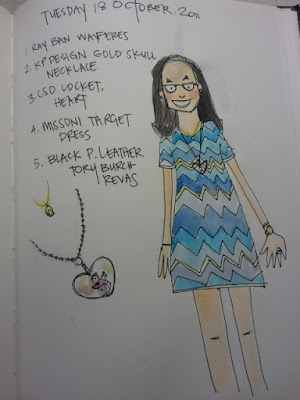 TUESDAY 18 OCTOBER. 2011
1. RAY BAN WAYFERES
2. KP DESIGN GOLD SKULL
NECKLACE
3. CSD LOCKET,
HEART
4. MISSONI TARGET
DRESS
5. BLACK P. LEATHER
TORY BURCH
REVAS